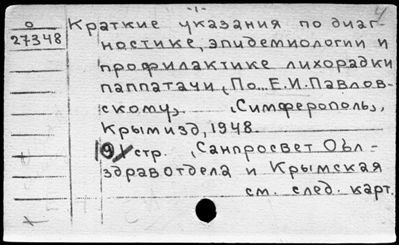 -1-
О
27348
Краткие указания по диаг-
ностике, эпидемиологии и
профилактике лихорадки
паппатачи, По... Е.И.Павлов-
скому, Симферополь,
Крымизд, 1948.
19 стр. Санпросвет Обл-
здравотдела и Крымская
см. след. карт.